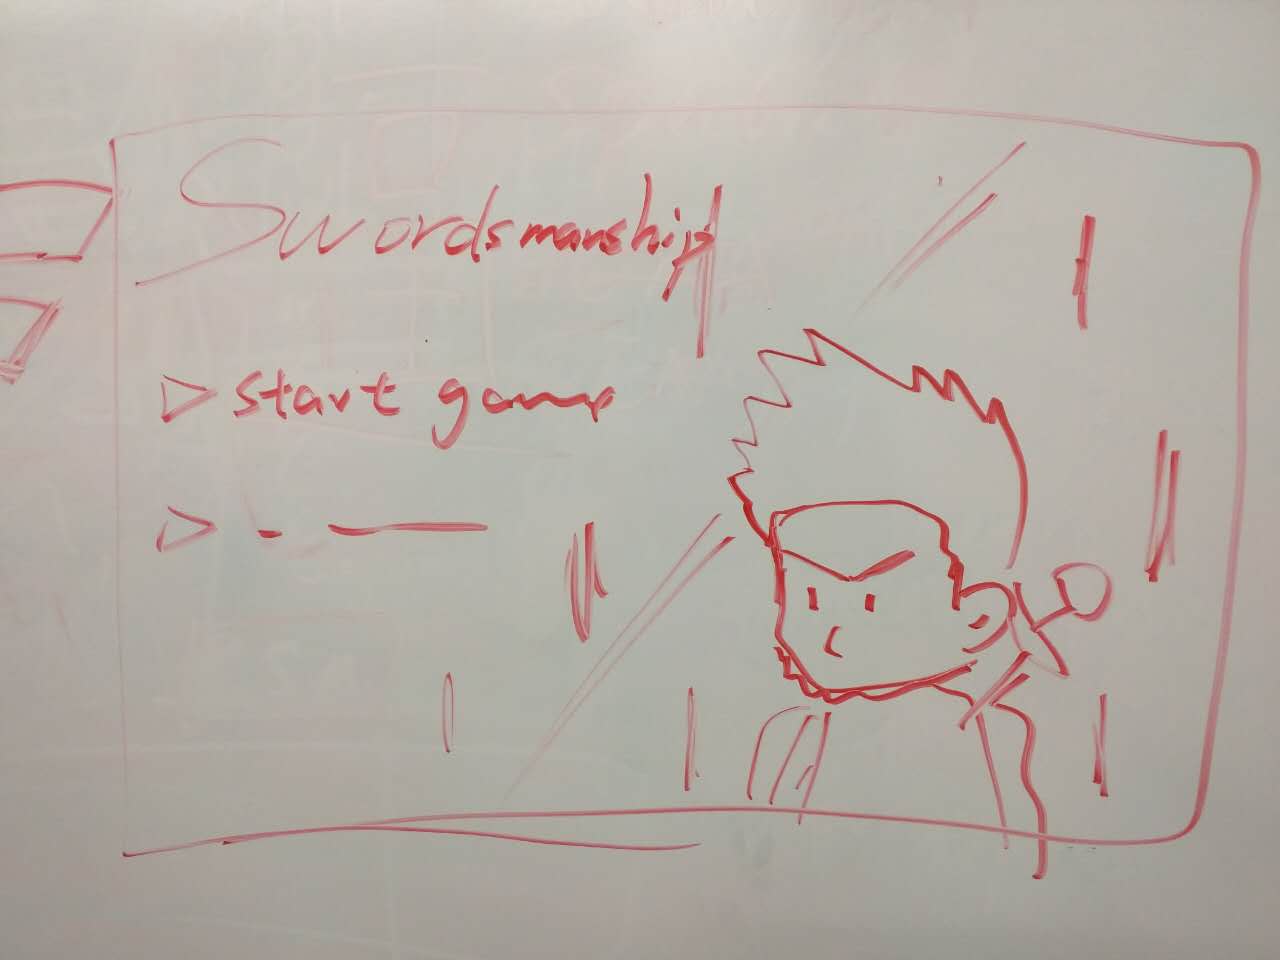 Swordsmanship
start game